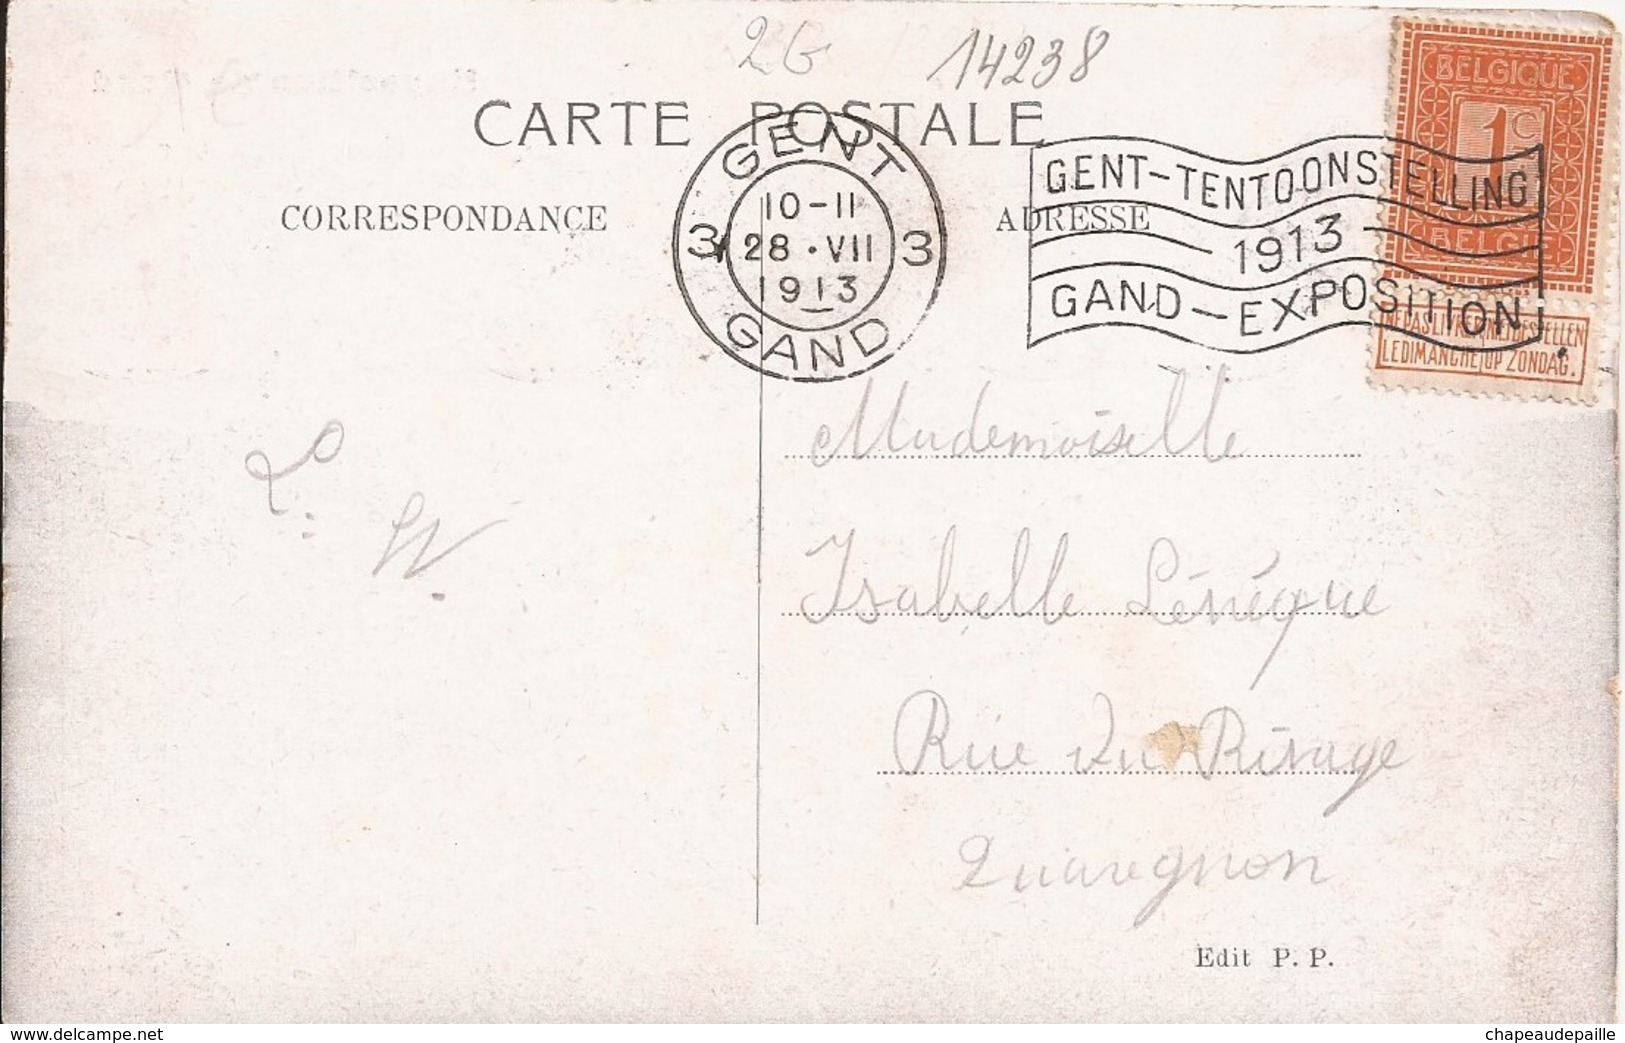 2G 14238
CARTE POSTALE
CORRESPONDANCE
ADRESSE
GENT
10-11
3 28 · VII 3
1913
GAND
GENT-TENTOONSTELLING
1913
GAND-EXPOSITION
BELGIQUE
1C
BELGIË
NE PAS LIVRER NIET BESTELLEN
LE DIMANCHE OP ZONDAG.
L. W.
Mademoiselle
Isabelle Lévéque
Rue du Rivage
Quaregnon
Edit P. P.
www.delcampe.net
chapeaudepaille